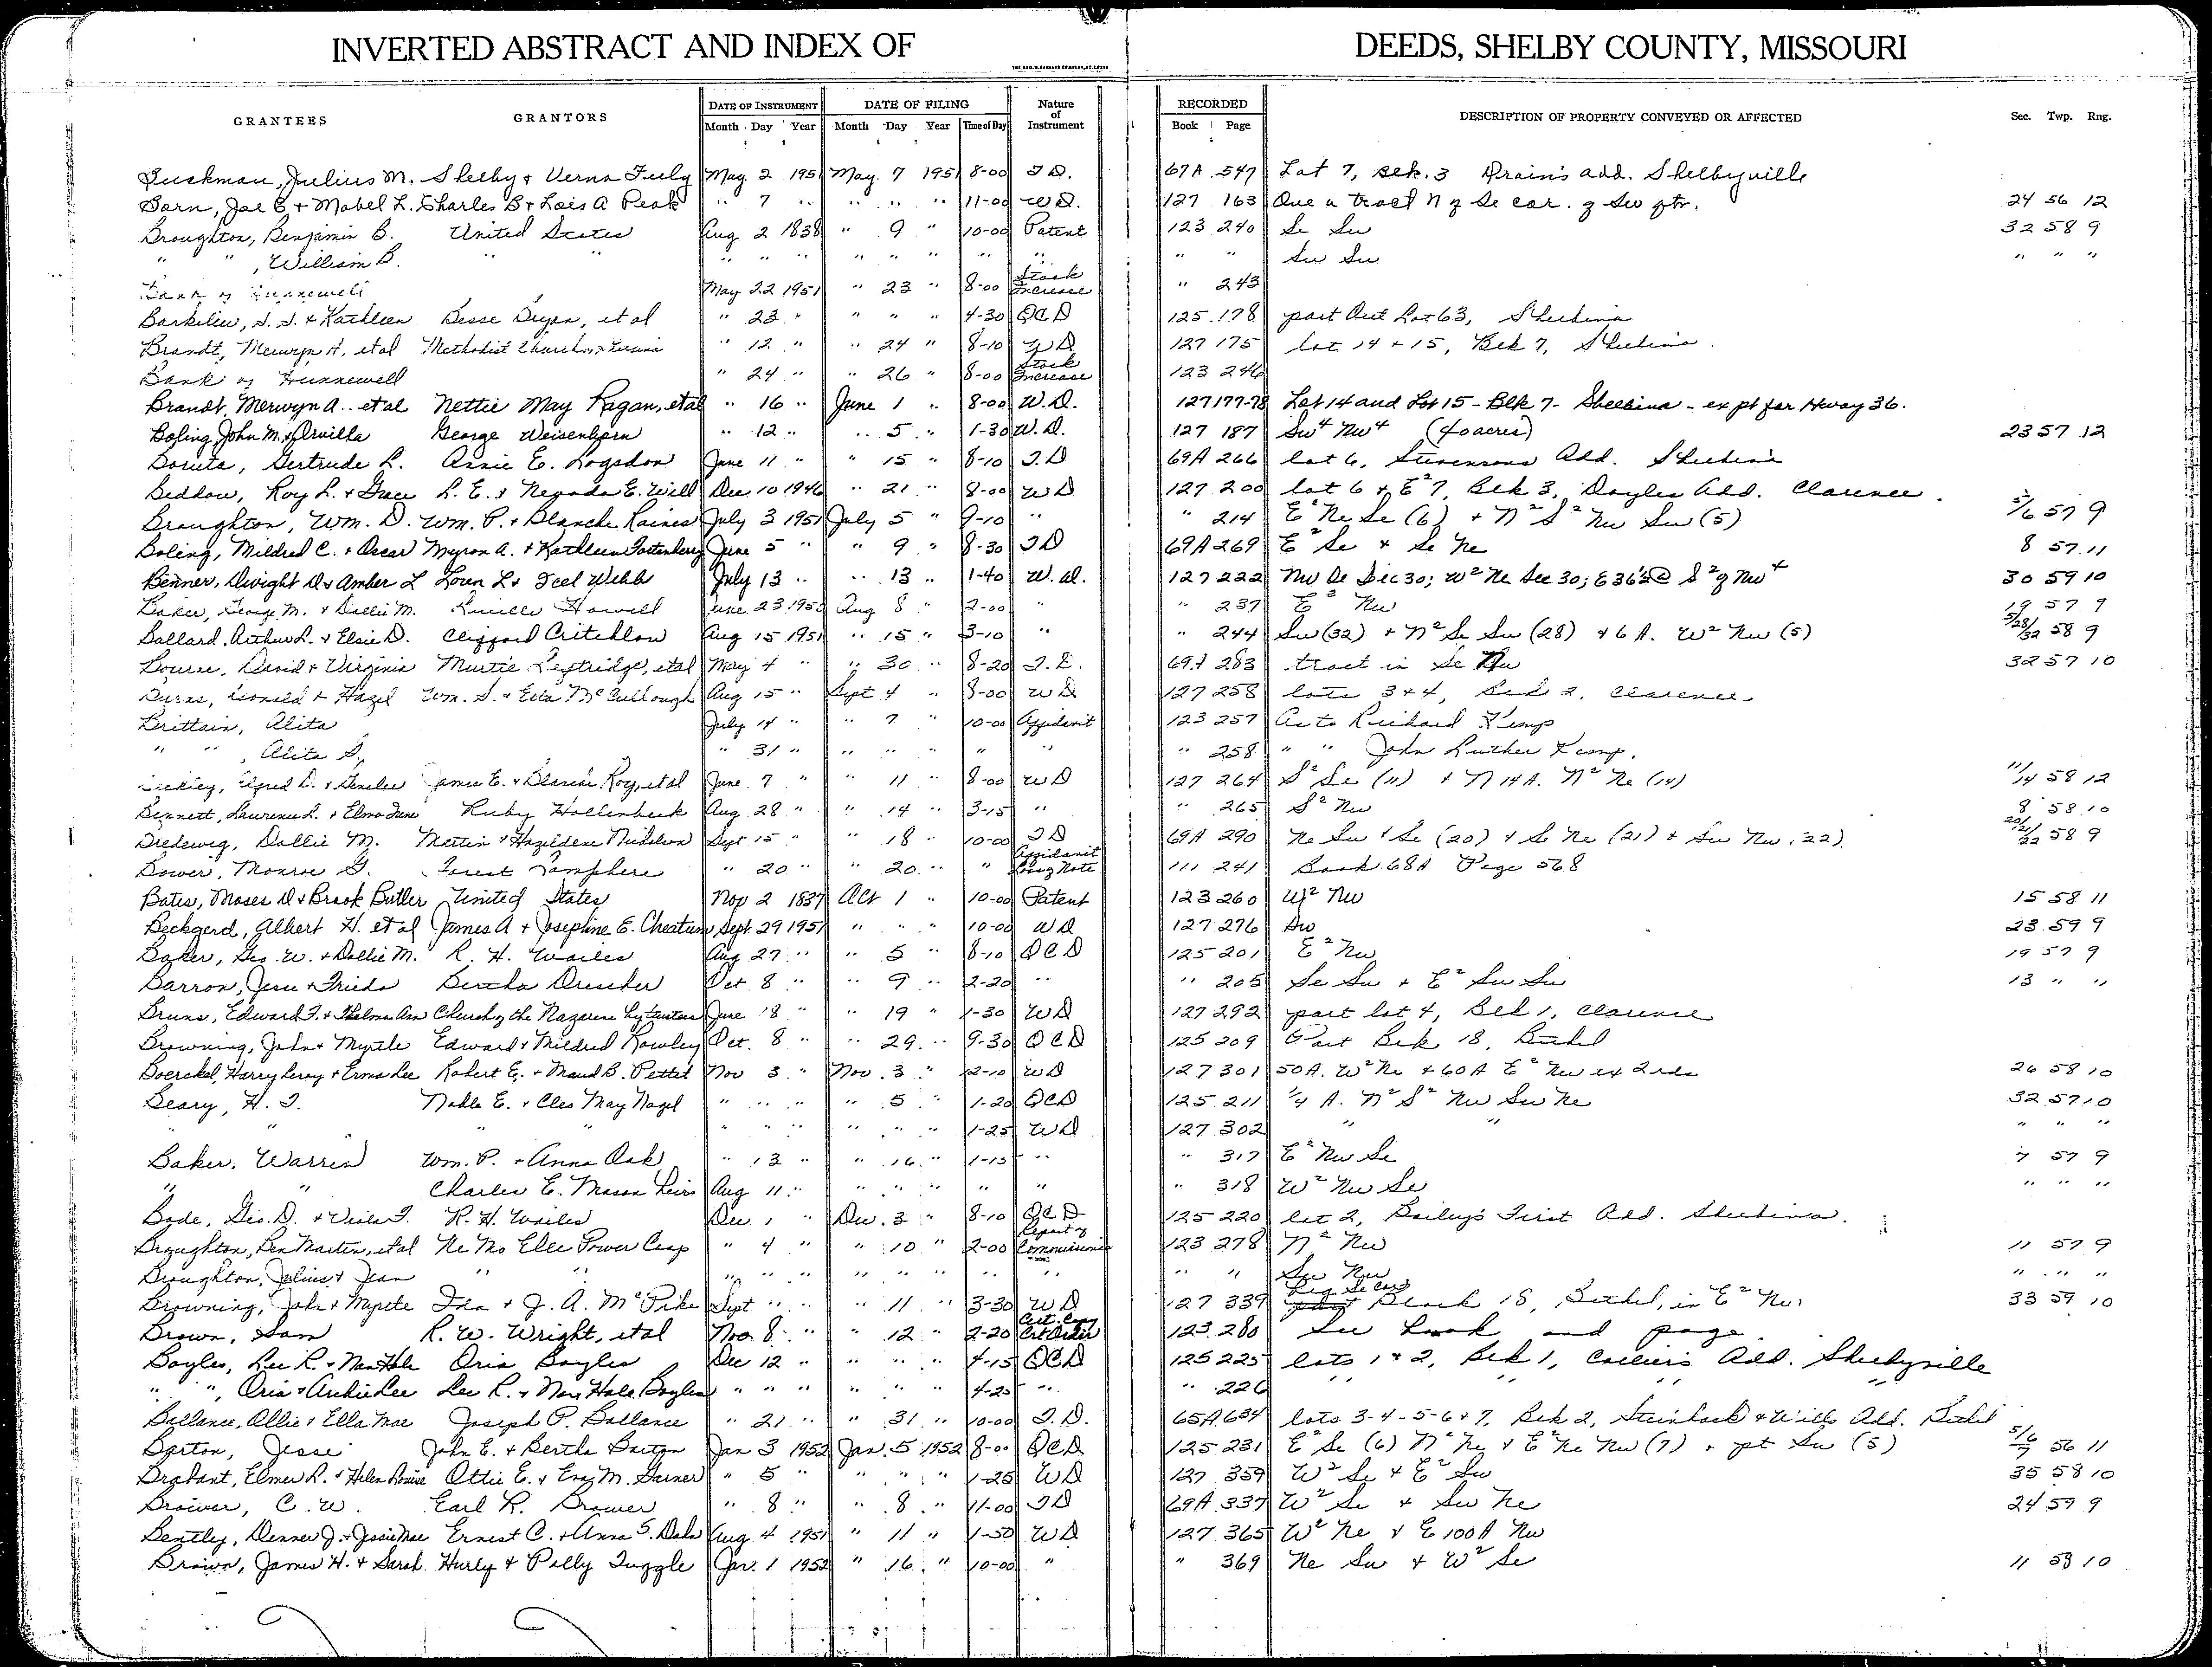 INVERTED ABSTRACT AND INDEX OF DEEDS, SHELBY COUNTY, MISSOURI
GRANTEES GRANTORS DATE OF INSTRUMENT DATE OF FILING Nature of Instrument RECORDED DESCRIPTION OF PROPERTY CONVEYED OR AFFECTED Sec. Twp. Rng.
Month Day Year Month Day Year Time of Day Book Page
Julius M. Shelby + Verna Feely May 2 1951 May 7 1951 8-00 T D. 67A 547 Lot 7, Blk. 3 Drain's add. Shelbyville
Joe E + Mabel L. Charles B + Lois A Peak " 7 " " " " 11-00 W D. 127 163 One a tract N of Se cor. of Sw qtr. 24 56 12
Broughton, Benjamin B. United States Aug 2 1838 " 9 " 10-00 Patent 123 240 Se Sw 32 58 9
" " , William B. " " " " " " " " " " " " Sw Sw " " "
Bank of Hunnewell May 22 1951 " 23 " 8-00 Stock Increase " 243
S. S. + Kathleen Besse Bryan, et al " 23 " " " " 4-30 QCD 125 178 part Out Lot 63, Shelbina
Brandt, Merwyn A. et al Methodist Church " 12 " " 24 " 8-10 WD 127 175 lot 14 + 15, Blk 7, Shelbina.
Bank of Hunnewell " 24 " " 26 " 8-00 Stock Increase 123 246
Brandt, Merwyn A. et al Nettie May Ragan, et al " 16 " June 1 " 8-00 W.D. 127 177-78 Lot 14 and Lot 15 - Blk 7 - Shelbina - ex pt for Hway 36.
Boling, John M. + Orvilla George Weisenborn " 12 " " 5 " 1-30 W.D. 127 187 Sw4 Nw4 (40 acres) 23 57 12
Gertrude L. Annie E. Logsdon June 11 " " 15 " 8-10 T.D 69A 266 lot 6, Stevensons Add. Shelbina
Beddow, Roy L. + Grace L. E. + Nevada E. Will Dec 10 1946 " 21 " 8-00 WD 127 200 lot 6 + E2 7, Blk 3, Doyles Add. Clarence.
Broughton, Wm. D. Wm. P. + Blanche Raines July 3 1951 July 5 " 9-10 " " 214 E2 Ne Se (6) + N2 S2 Nw Sw (5) 5/6 57 9
Boling, Mildred C. + Oscar Myron A. + Kathleen Fortenberry June 5 " " 9 " 8-30 T D 69A 269 E2 Se + Se Ne 8 57 11
Benner, Dwight D + Amber L Loren L + Icel Webb July 13 " " 13 " 1-40 W.D. 127 222 Nw Se Sec 30; W2 Ne Sec 30; S2 of Nw4 30 59 10
Baker, George M. + Dollie M. Lucille Howell June 23 1950 Aug 8 " 2-00 " " 237 E2 Nw 19 57 9
Ballard, Arthur L. + Elsie D. Clifford Critchlow Aug 15 1951 " 15 " 3-10 " " 244 Sw (32) + N2 Se Sw (28) + 6 A. W2 Nw (5) 5/28/32 58 9
Bourne, David + Virginia Myrtie Leftridge, et al May 4 " " 30 " 8-20 T.D. 69A 283 tract in Se Nw 32 57 10
Donald + Hazel Wm. S. + Eda McCullough Aug 15 " Sept. 4 " 8-00 WD 127 258 lots 3+4, Blk 2, Clarence
Brittain, Alita July 14 " " 7 " 10-00 Affidavit 123 257 As to Richard Kemp
" " , Alita S. " 31 " " " " " " " 258 " " John Luther Kemp.
James E. + Blanche Roy, et al June 7 " " 11 " 8-00 WD 127 264 S2 Se (11) + N 14 A. N2 Ne (14) 11/14 58 12
Bennett, Lawrence L. + Elma June Ruby Hollenbeck Aug. 28 " " 14 " 3-15 " " 265 S2 Nw 8 58 10
Diedewig, Dollie M. Martin + Hazeldene Nicholson Sept 15 " " 18 " 10-00 T D 69A 290 Ne Sw + Se (20) + Se Ne (21) + Sw Nw (22). 20/21/22 58 9
Bower, Monroe G. Forest Lamphere " 20 " " 20 " " Affidavit Note 111 241 Book 68A Page 568
Bates, Moses D + Brook Butler United States Nov 2 1837 Oct 1 " 10-00 Patent 123 260 W2 Nw 15 58 11
Beckgerd, Albert H. et al James A + Josephine E. Cheatum Sept. 29 1951 " " " 10-00 WD 127 276 Sw 23 59 9
Baker, Geo. W. + Dollie M. R. H. Wailes Aug 27 " " 5 " 8-10 QCD 125 201 E2 Nw 19 57 9
Barron, Jesse + Frieda Bertha Drescher Oct. 8 " " 9 " 2-20 " " 205 Se Sw + E2 Sw Sw 13 " "
Bruns, Edward F. + Thelma Ann Church of the Nazarene by trustees June 18 " " 19 " 1-30 WD 127 292 part lot 4, Blk 1, Clarence
Browning, John + Myrtle Edward + Mildred Rowley Oct. 8 " " 29 " 9-30 QCD 125 209 Part Blk 18, Bethel
Boerckel, Harry Leroy + Erma Lee Robert E. + Maud B. Pettit Nov 3 " Nov. 3 " 2-10 WD 127 301 50 A. W2 Ne + 60 A E2 Nw ex 2 rds 26 58 10
Beary, H. T. Noble E. + Cleo May Nagel " " " " 5 " 1-20 QCD 125 211 1/4 A. N2 S2 Nw Sw Ne 32 57 10
" " " " " " " " " " 1-25 WD 127 302 " " " " "
Baker, Warren Wm. P. + Anna Oak " 13 " " 16 " 1-15 " " 317 E2 Nw Se 7 57 9
" " Charles E. Mason heirs Aug 11 " " " " " " " 318 W2 Nw Se " " "
Bode, Geo. D. + Viola F. R. H. Wailes Dec. 1 " Dec. 3 " 8-10 QCD 125 220 lot 2, Bailey's First Add. Shelbina.
Broughton, Ben Martin, et al Ne Mo Elec Power Coop " 4 " " 10 " 2-00 Report of Commissioners 123 278 N2 Nw 11 57 9
Broughton, Julius + Jean " " " " " " " " " " " " Sw Nw " " "
Browning, John + Myrtle Ida + J. A. McPike Sept. " " " 11 " 3-30 WD 127 339 Beg Se cor Block 18, Bethel, in E2 Nw 33 59 10
Brown, Sam R. W. Wright, et al Nov. 8 " " 12 " 2-20 Cert. Copy Crt Order 123 280 See book and page.
Bayles, Lee R. + Nan Hale Oria Bayles Dec 12 " " " " 4-15 QCD 125 225 lots 1 + 2, Blk 1, Collier's Add. Shelbyville
" ", Oria + Archie Lee Lee R. + Nan Hale Bayles " " " " " " 4-25 " " 226 " " " "
Ballance, Allie + Ella Mae Joseph P. Ballance " 21 " " 31 " 10-00 T.D. 65A 634 lots 3-4-5-6+7, Blk 2, Steinbach + Wills Add. Bethel
Barton, Jesse John E. + Bertha Barton Jan 3 1952 Jan. 5 1952 8-00 QCD 125 231 E2 Se (6) N2 Ne + E2 Ne Nw (7) + pt Sw (5) 5/6/7 56 11
Brabant, Elmer R. + Helen Louise Ottie E. + Eva M. Garner " 5 " " " " 1-25 WD 127 359 W2 Se + E2 Sw 35 58 10
Brower, C. W. Earl R. Brower " 8 " " 8 " 11-00 T D 69A 337 W2 Se + Sw Ne 24 57 9
Bentley, Denner J. + Jessie Mae Ernest C. + Anna S. Aug 4 1951 " 11 " 1-50 WD 127 365 W2 Ne + E 100 A Nw
Brown, James H. + Sarah Hurly + Polly Tuggle Jan. 1 1952 " 16 " 10-00 " " 369 Ne Sw + W2 Se 11 58 10